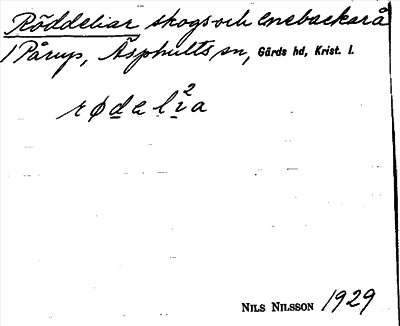 Röddeliar skogs och enebackar å
Pårup, Äsphults sn, Gärds hd, Krist. l.
rødelia
2
NILS NILSSON 1929